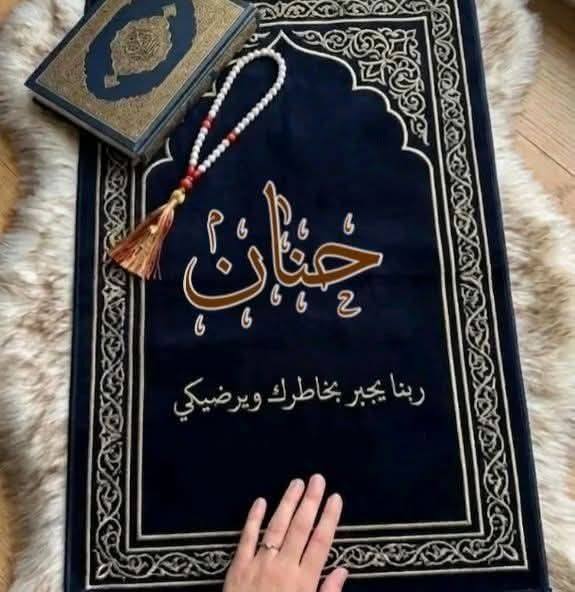 حنان
ربنا يجبر بخاطرك ويرضيكي